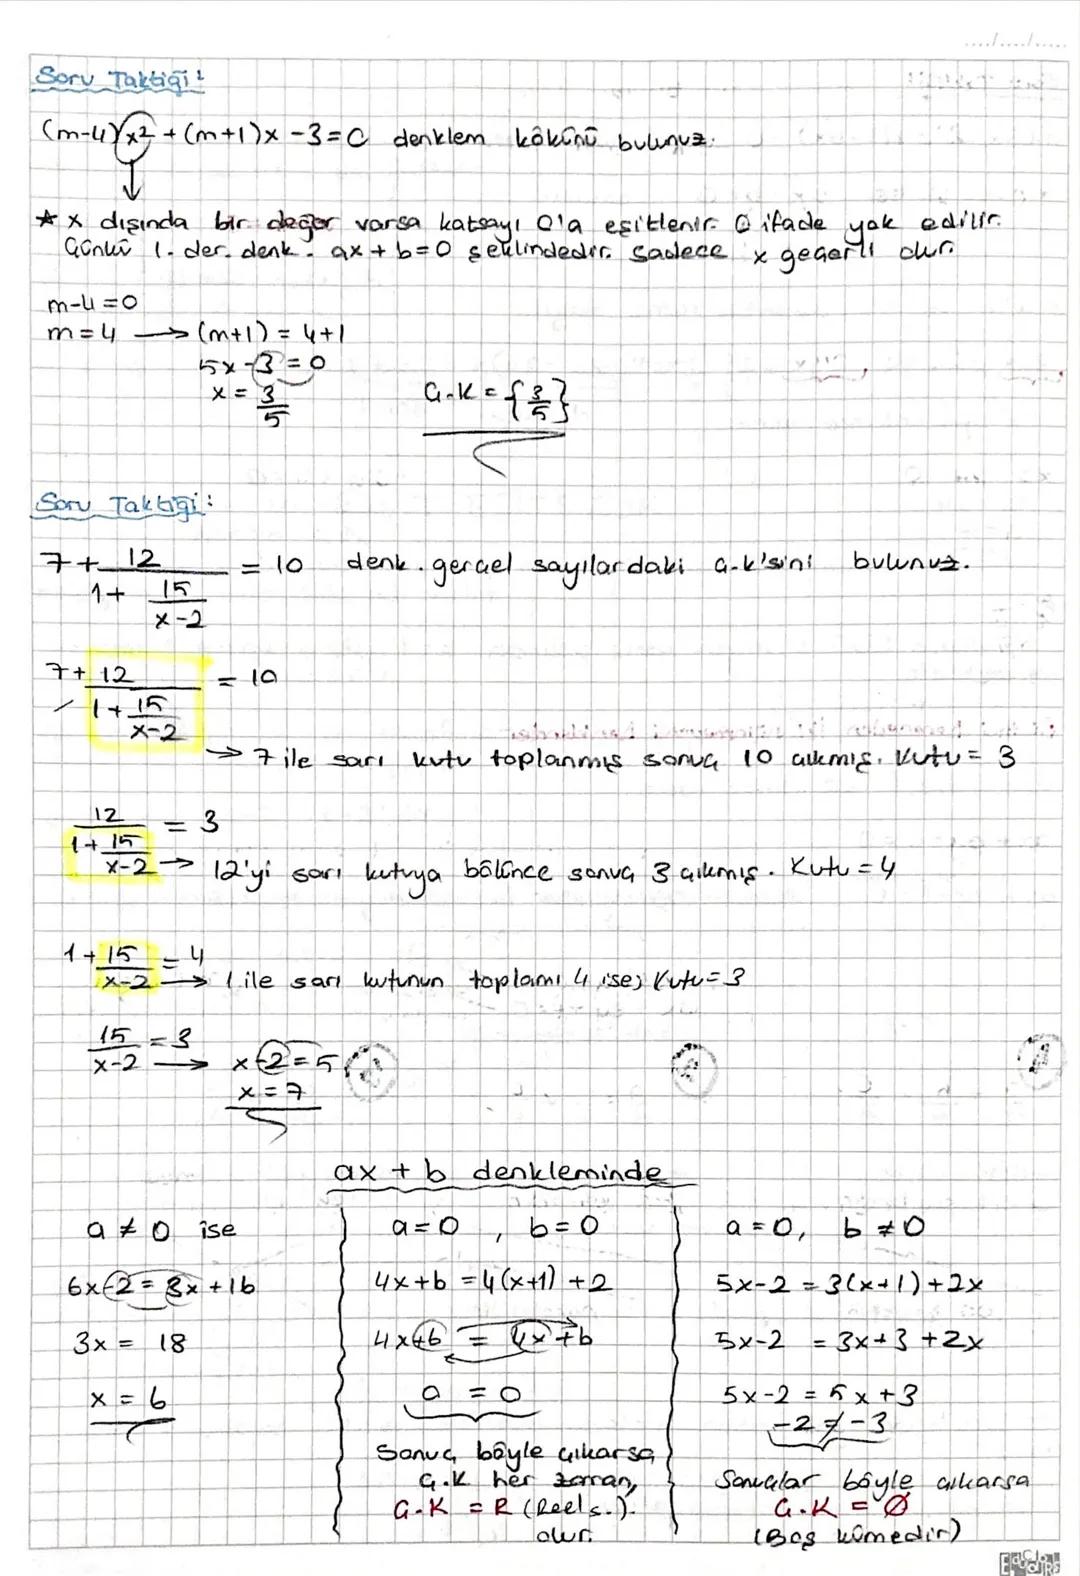 Soru Taktiği:
(m-4)x² + (m+1)x - 3 = 0 denklem kökünü bulunuz.
* x dışında bir değer varsa katsayı 0'a eşitlenir. O ifade yok edilir.
Çünkü 1. der. denk. ax + b = 0 şeklindedir. Sadece x geçerli olur.
m-4 = 0
m = 4 → (m+1) = 4+1
5x - 3 = 0
x = 3/5
Ç.K = {3/5}
Soru Taktiği:
7 + 12/(1 + 15/(x-2)) = 10 denk. gerçel sayılardaki ç.k'sini bulunuz.
7 + 12/(1 + 15/(x-2)) = 10
→ 7 ile sarı kutu toplanmış sonuç 10 çıkmış. Kutu = 3
12/(1 + 15/(x-2)) = 3
→ 12'yi sarı kutuya bölünce sonuç 3 çıkmış. Kutu = 4
1 + 15/(x-2) = 4
→ 1 ile sarı kutunun toplamı 4 ise, Kutu = 3
15/(x-2) = 3 → x-2 = 5
x = 7
ax + b denkleminde
a ≠ 0 ise
6x-2 = 3x + 16
3x = 18
x = 6
a = 0 , b = 0
4x+6 = 4(x+1) + 2
4x+6 = 4x+6
0 = 0
Sonuç böyle çıkarsa
Ç.K her zaman,
Ç.K = R (Reel s.).
olur.
a = 0, b ≠ 0
5x-2 = 3(x+1) + 2x
5x-2 = 3x+3 + 2x
5x-2 = 5x+3
-2 ≠ -3
Sonuçlar böyle çıkarsa
Ç.K = Ø
(Boş kümedir)